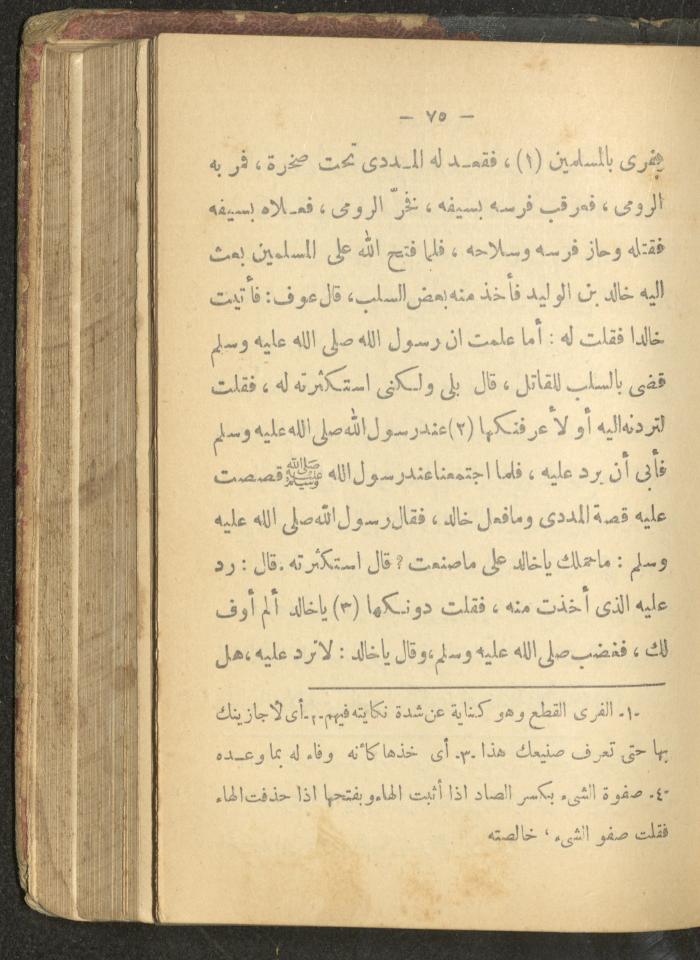 — ٧٥ —
يفرى بالمسلمين (١) ، فقعد له المددى تحت صخرة ، فمر به
الرومى ، فعرقب فرسه بسيفه ، نفرّ الرومى ، فعلاه بسيفه
فقتله وحاز فرسه وسلاحه ، فلما فتح الله على المسلمين بعث
اليه خالد بن الوليد فأخذ منه بعض السلب، قال عوف : فأتيت
خالدا فقلت له : أما علمت ان رسول الله صلى الله عليه وسلم
قضى بالسلب للقاتل ، قال بلى ولكنى استكثرته له ، فقلت
لتردنه اليه أو لأعرفنكها (٢) عند رسول الله صلى الله عليه وسلم
فأبى أن يرد عليه ، فلما اجتمعنا عند رسول الله ﷺ قصصت
عليه قصة المددى وما فعل خالد ، فقال رسول الله صلى الله عليه
وسلم : ما حملك يا خالد على ما صنعت ؟ قال استكثرته . قال : رد
عليه الذى أخذت منه ، فقلت دونكها (٣) يا خالد ألم أوف
لك ، فغضب صلى الله عليه وسلم ، وقال يا خالد : لا ترد عليه ، هل
-١- الفرى القطع وهو كناية عن شدة نكايته فيهم -٢- أى لاجازينك
بها حتى تعرف صنيعك هذا -٣- أى خذها كأنه وفاء له بما وعده
-٤- صفوة الشىء بكسر الصاد اذا أثبت الهاء وبفتحها اذا حذفت الهاء
فقلت صفو الشىء ، خالصته